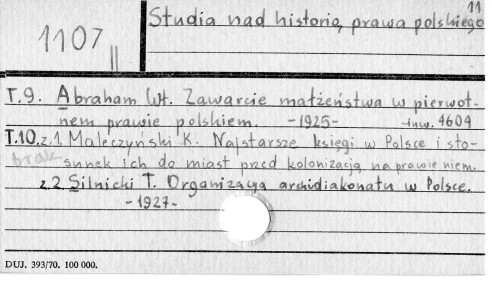 11
1107 ||
Studia nad historią prawa polskiego
T.9. Abraham Wł. Zawarcie małżeństwa w pierwot-
nem prawie polskiem. -1925- inw. 4604
T.10.z.1. Maleczyński K. Najstarsze księgi w Polsce i sto-
brak sunek ich do miast przed kolonizacją na prawie niem.
z.2. Silnicki T. Organizacja archidiakonatu w Polsce.
-1927-
DUJ. 393/70. 100 000.